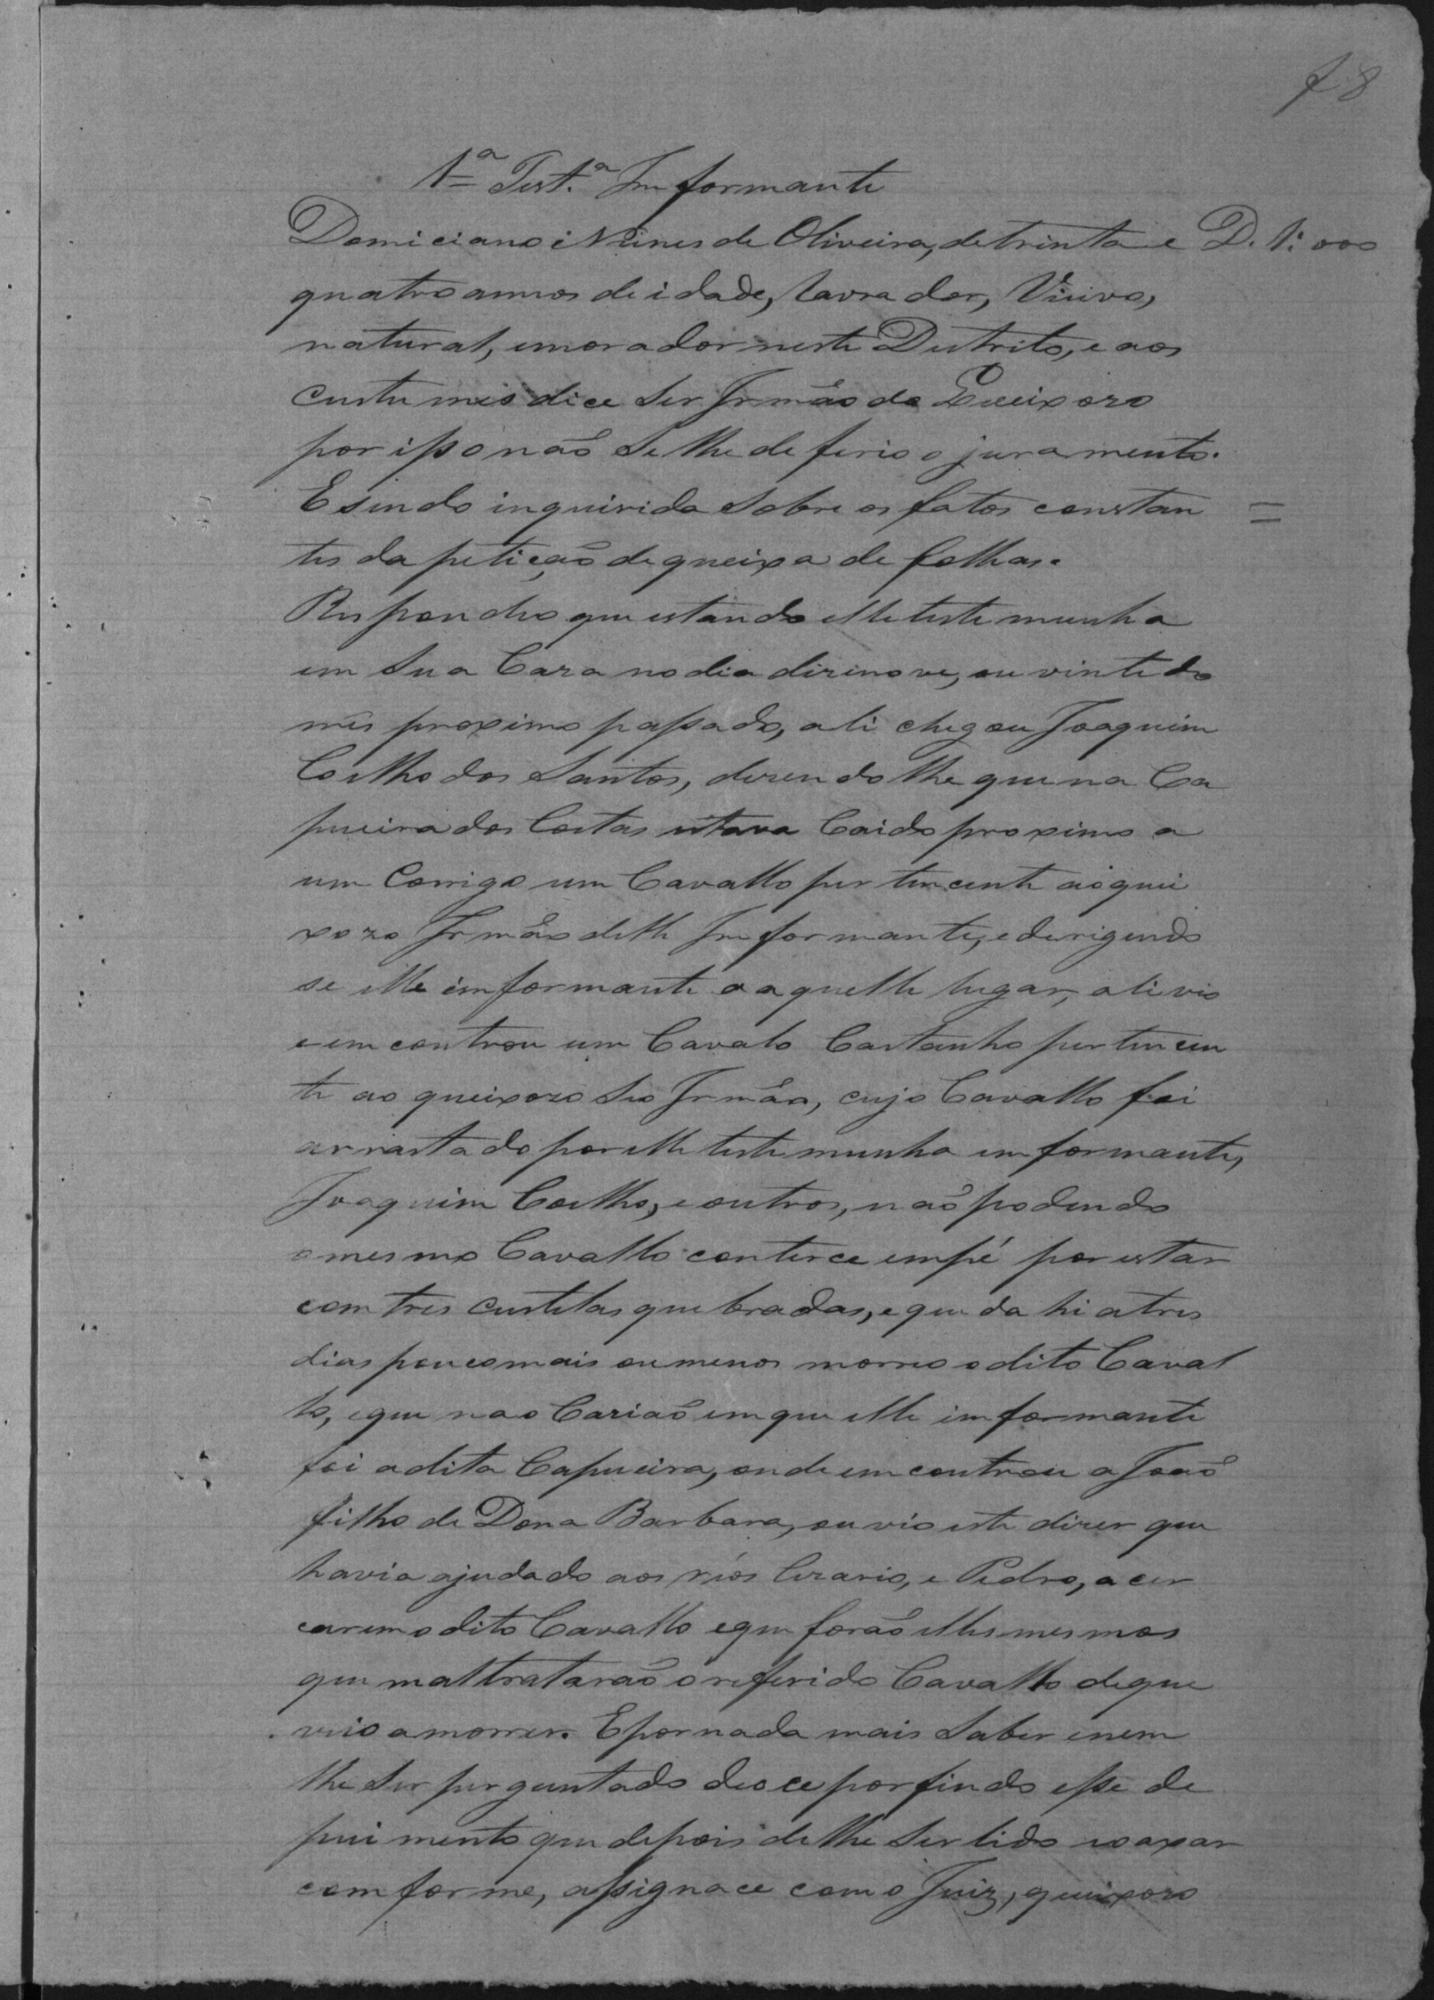 f 8
1ª Test.ª Informante
Domiciano Nunes de Oliveira, de trinta e D. 1:000
quatro annos de idade, lavrador, Viuvo,
natural, e morador neste Destrito, e aos
custumes dice Ser Irmão do Queixozo
por isso não Se lhe deferio o juramento.
E sendo inquirida Sobre os fatos constan =
tes da petição de queixa de folhas.
Respondeo que estando elle testemunha
em Sua Caza no dia dizinove, ou vinte do
mês proximo passado, ali chegou Joaquim
Coelho dos Santos, dizendo lhe que na Ca
pueira dos Costas estava Caido proximo a
um Corrigo um Cavallo pertencente ao quei
xozo Irmão delle Informante, e derigindo
se elle imformante a aquelle lugar, ali vio
e emcontrou um Cavalo Castanho pertencen
te ao queixozo Seo Irmão, cujo Cavallo foi
arrastado por elle testemunha imformante,
Joaquim Coelho, e outros, não podendo
o mesmo Cavallo conterce empé por estar
com tres custelas quebradas, e que dahi a tres
dias pouco mais ou menos morreo o dito Caval
lo, e que na o Cazião em que elle imformante
foi a dita Capueira, onde emcontrou a João
filho de Dona Barbara, ouvio este dizer que
havia ajudado aos réos Cezario, e Pedro, a cer
carem o dito Cavallo e que forão elles mesmos
que maltratarão o referido Cavallo de que
veio a morrer. E por nada mais Saber e nem
lhe Ser perguntado deo ce por findo esse de
puimento que depois de lhe Ser lido e o axar
comforme, assignace com o Juiz, queixozo